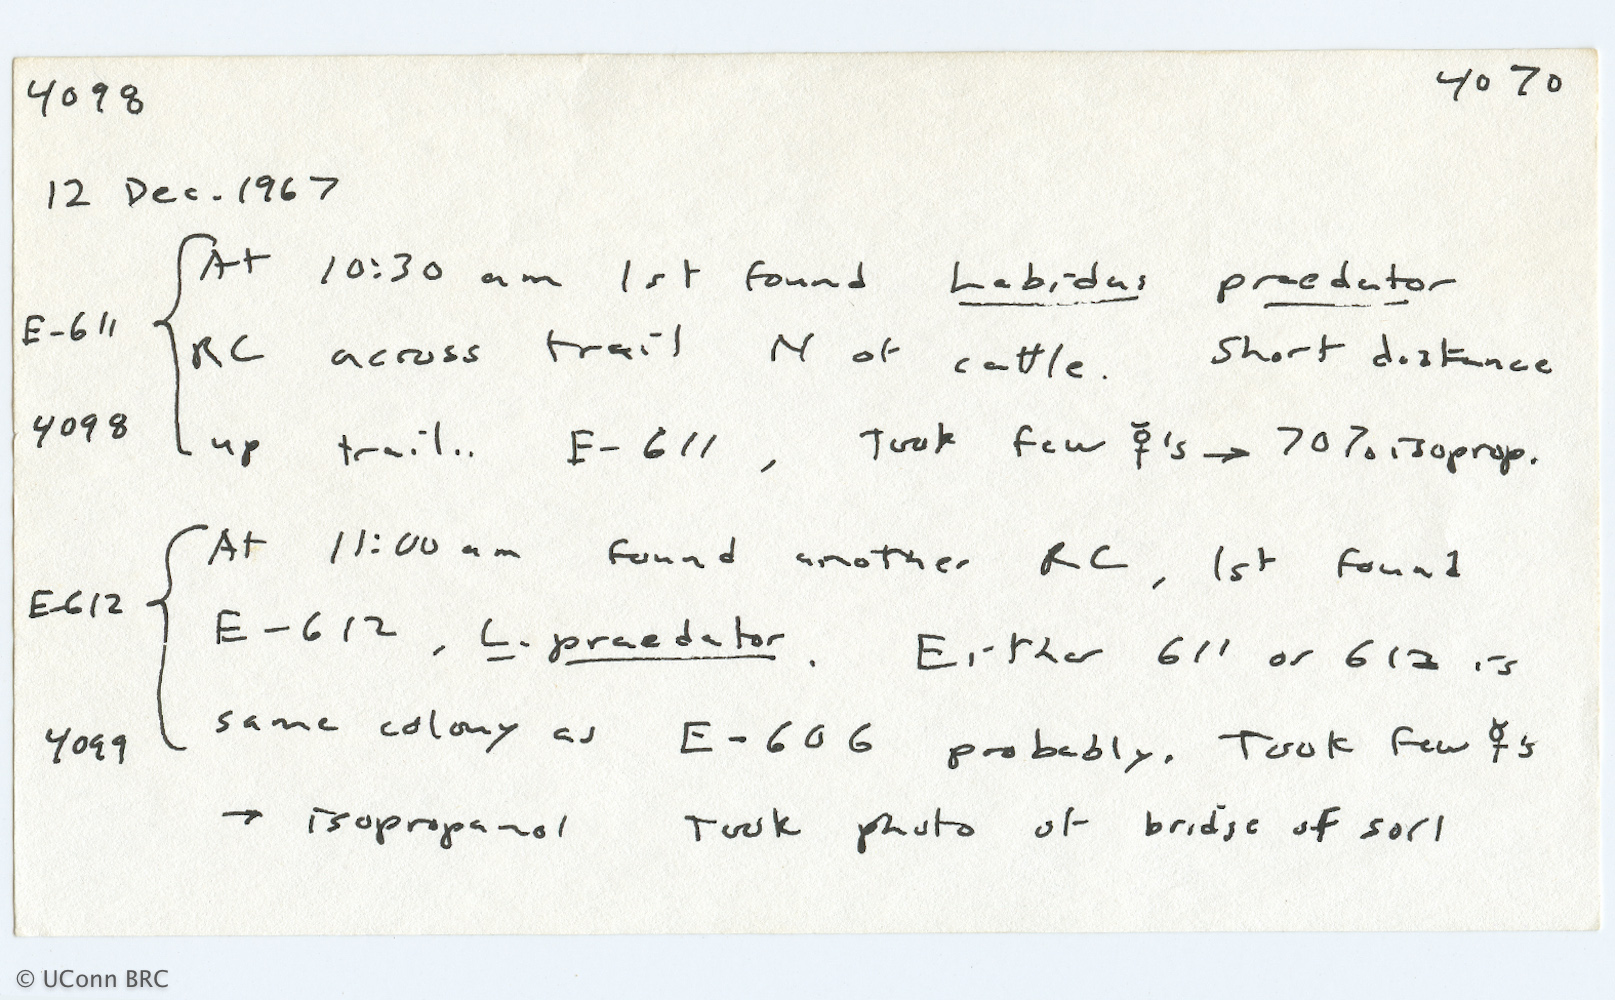 4098 4070
12 Dec. 1967
At 10:30 am 1st found Labidus praedator
E-611 RC across trail N of cattle. Short distance
4098 up trail.. E-611, Took few ☿'s → 70% isoprop.
At 11:00 am found another RC, 1st found
E-612 E-612, L. praedator. Either 611 or 612 is
4099 same colony as E-606 probably. Took few ☿'s
→ isopropanol Took photo of bridge of soil
© UConn BRC